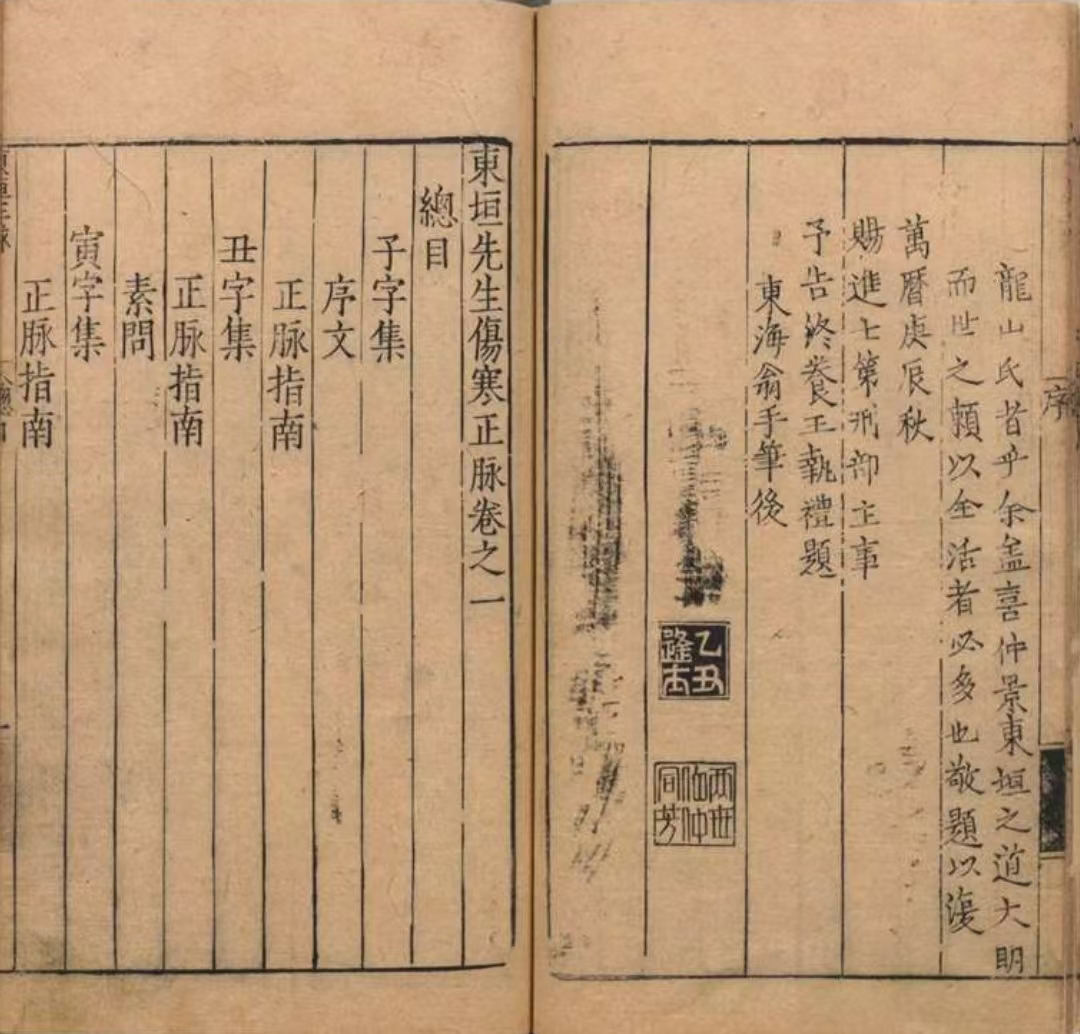 序
龍山氏者乎余盖喜仲景東垣之道大明
而世之頼以全活者必多也敬題以復
萬曆庚辰秋
賜進士第刑部主事
予告終養王執禮題
東海翁手筆後
乙丑
進士
兩世
伯仲
同芳
東垣先生傷寒正脉卷之一
總目
子字集
序文
正脉指南
丑字集
正脉指南
素問
寅字集
正脉指南